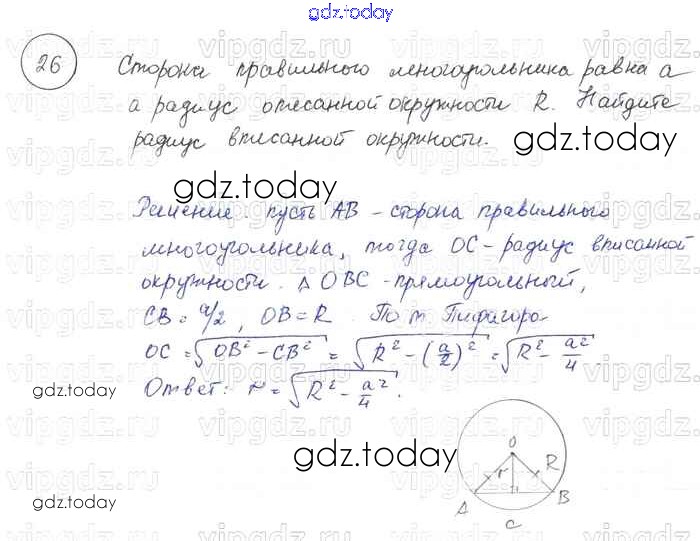 gdz.today
26
Сторона правильного многоугольника равна a
а радиус описанной окружности R. Найдите
радиус вписанной окружности.
gdz.today
Решение: пусть AB – сторона правильного
многоугольника, тогда OC – радиус вписанной
окружности. Δ OBC – прямоугольный,
CB = a/2, OB = R. По т. Пифагора
OC = √(OB² − CB²) = √(R² − (a/2)²) = √(R² − a²/4)
Ответ: r = √(R² − a²/4).
gdz.today
gdz.today
gdz.today
gdz.today
O
r
R
A
B
C
vipgdz.ru